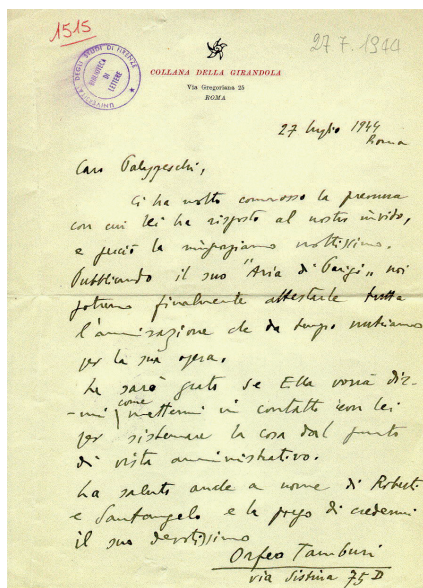 1515
27.7.1944
UNIVERSITÀ DEGLI STUDI DI FIRENZE
BIBLIOTECA
DI
LETTERE
COLLANA DELLA GIRANDOLA
Via Gregoriana 25
ROMA
27 luglio 1944
Roma
Caro Palazzeschi,
Ci ha molto commosso la premura
con cui lei ha risposto al nostro invito,
e perciò la ringraziamo moltissimo.
Pubblicando il suo "Aria di Parigi" noi
potremo finalmente attestarle tutta
l'ammirazione che da tempo nutriamo
per la sua opera.
Le sarò grato se Ella vorrà dir-
-mi come mettermi in contatto con lei
per sistemare la cosa dal punto
di vista amministrativo.
La saluto anche a nome di Roberti
e Santangelo e la prego di credermi
il suo devotissimo
Orfeo Tamburi
via Sistina 75D